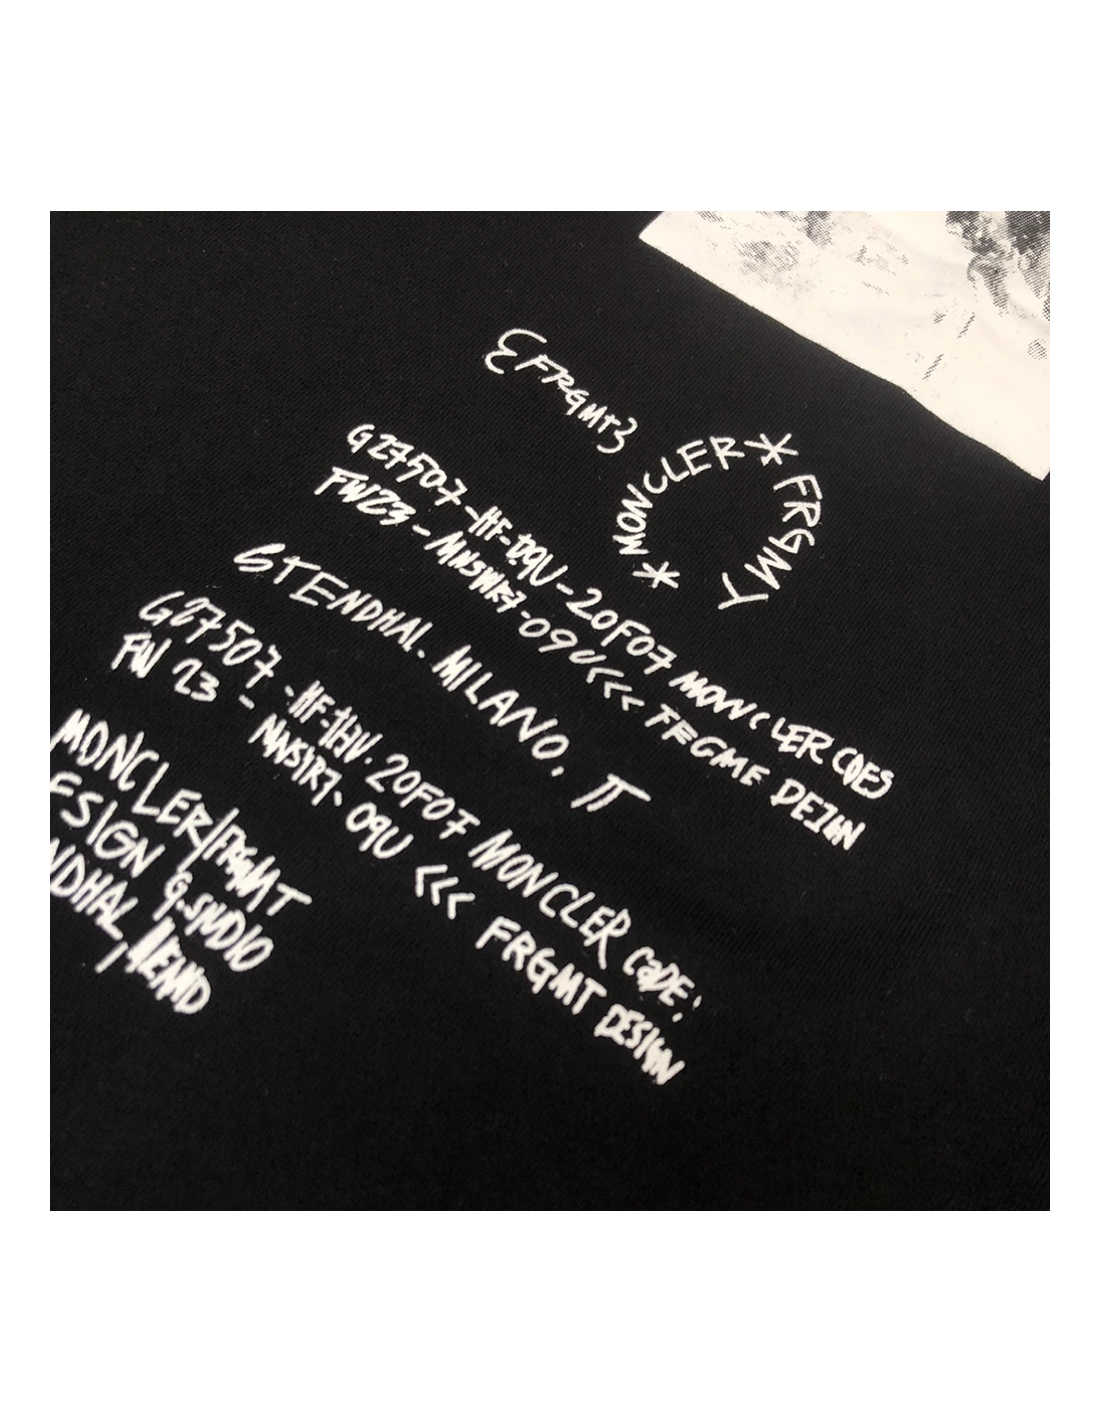 {FRGMT}
MONCLER * FRGMY *
G27507-HF-D9U-20F07 MONCLER COES
FW23-MNSWR7-09U<<< FEGME DEZIGN
STENDHAL. MILANO, IT
G27507-HF- 20F07 MONCLER CODE:
FW 23 - MNS1R7. 09U <<< FRGMT DESIGN
MONCLER/FRGMT
ESIGN
NDHAL,